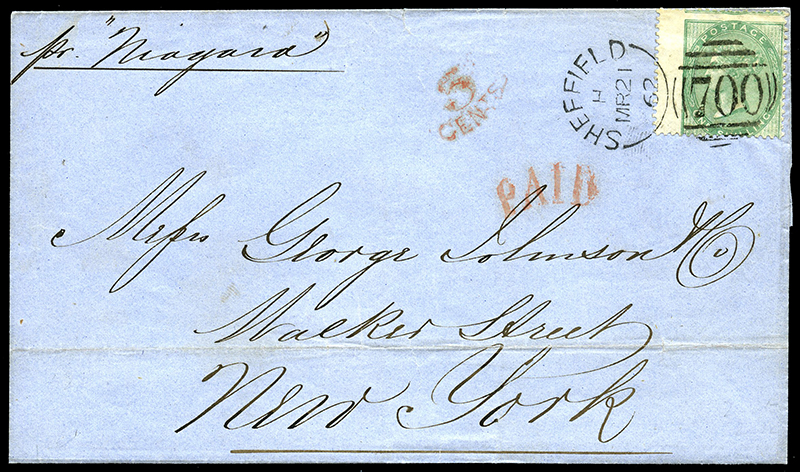 pr. "Niagara"
5
CENTS
SHEFFIELD
H
MR 21
62
POSTAGE
700
PAID
Messrs George Johnson & Co
Walker Street
New York